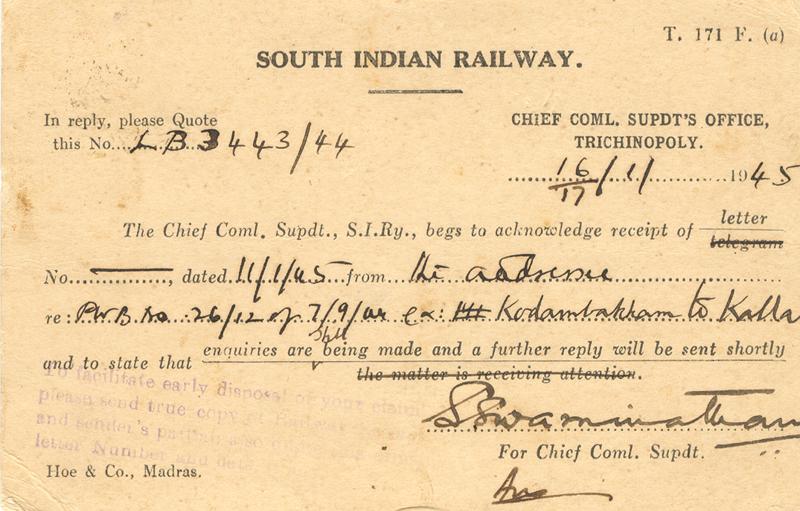 T. 171 F. (a)
SOUTH INDIAN RAILWAY.
In reply, please Quote
this No....LB3443/44
CHIEF COML. SUPDT'S OFFICE,
TRICHINOPOLY.
16/17/1/ 1945
The Chief Coml. Supdt., S.I.Ry., begs to acknowledge receipt of letter
telegram
No. ———, dated 11/1/45 from the addressee
re: PWB No 26/12 of 7/9/44 ex: Kodambakkam to Kalla
and to state that enquiries are still being made and a further reply will be sent shortly
the matter is receiving attention.
To facilitate early disposal of your claim
please send true copy of Railway
and sender's
letter Number and date
S Swaminathan
For Chief Coml. Supdt.
Hoe & Co., Madras.